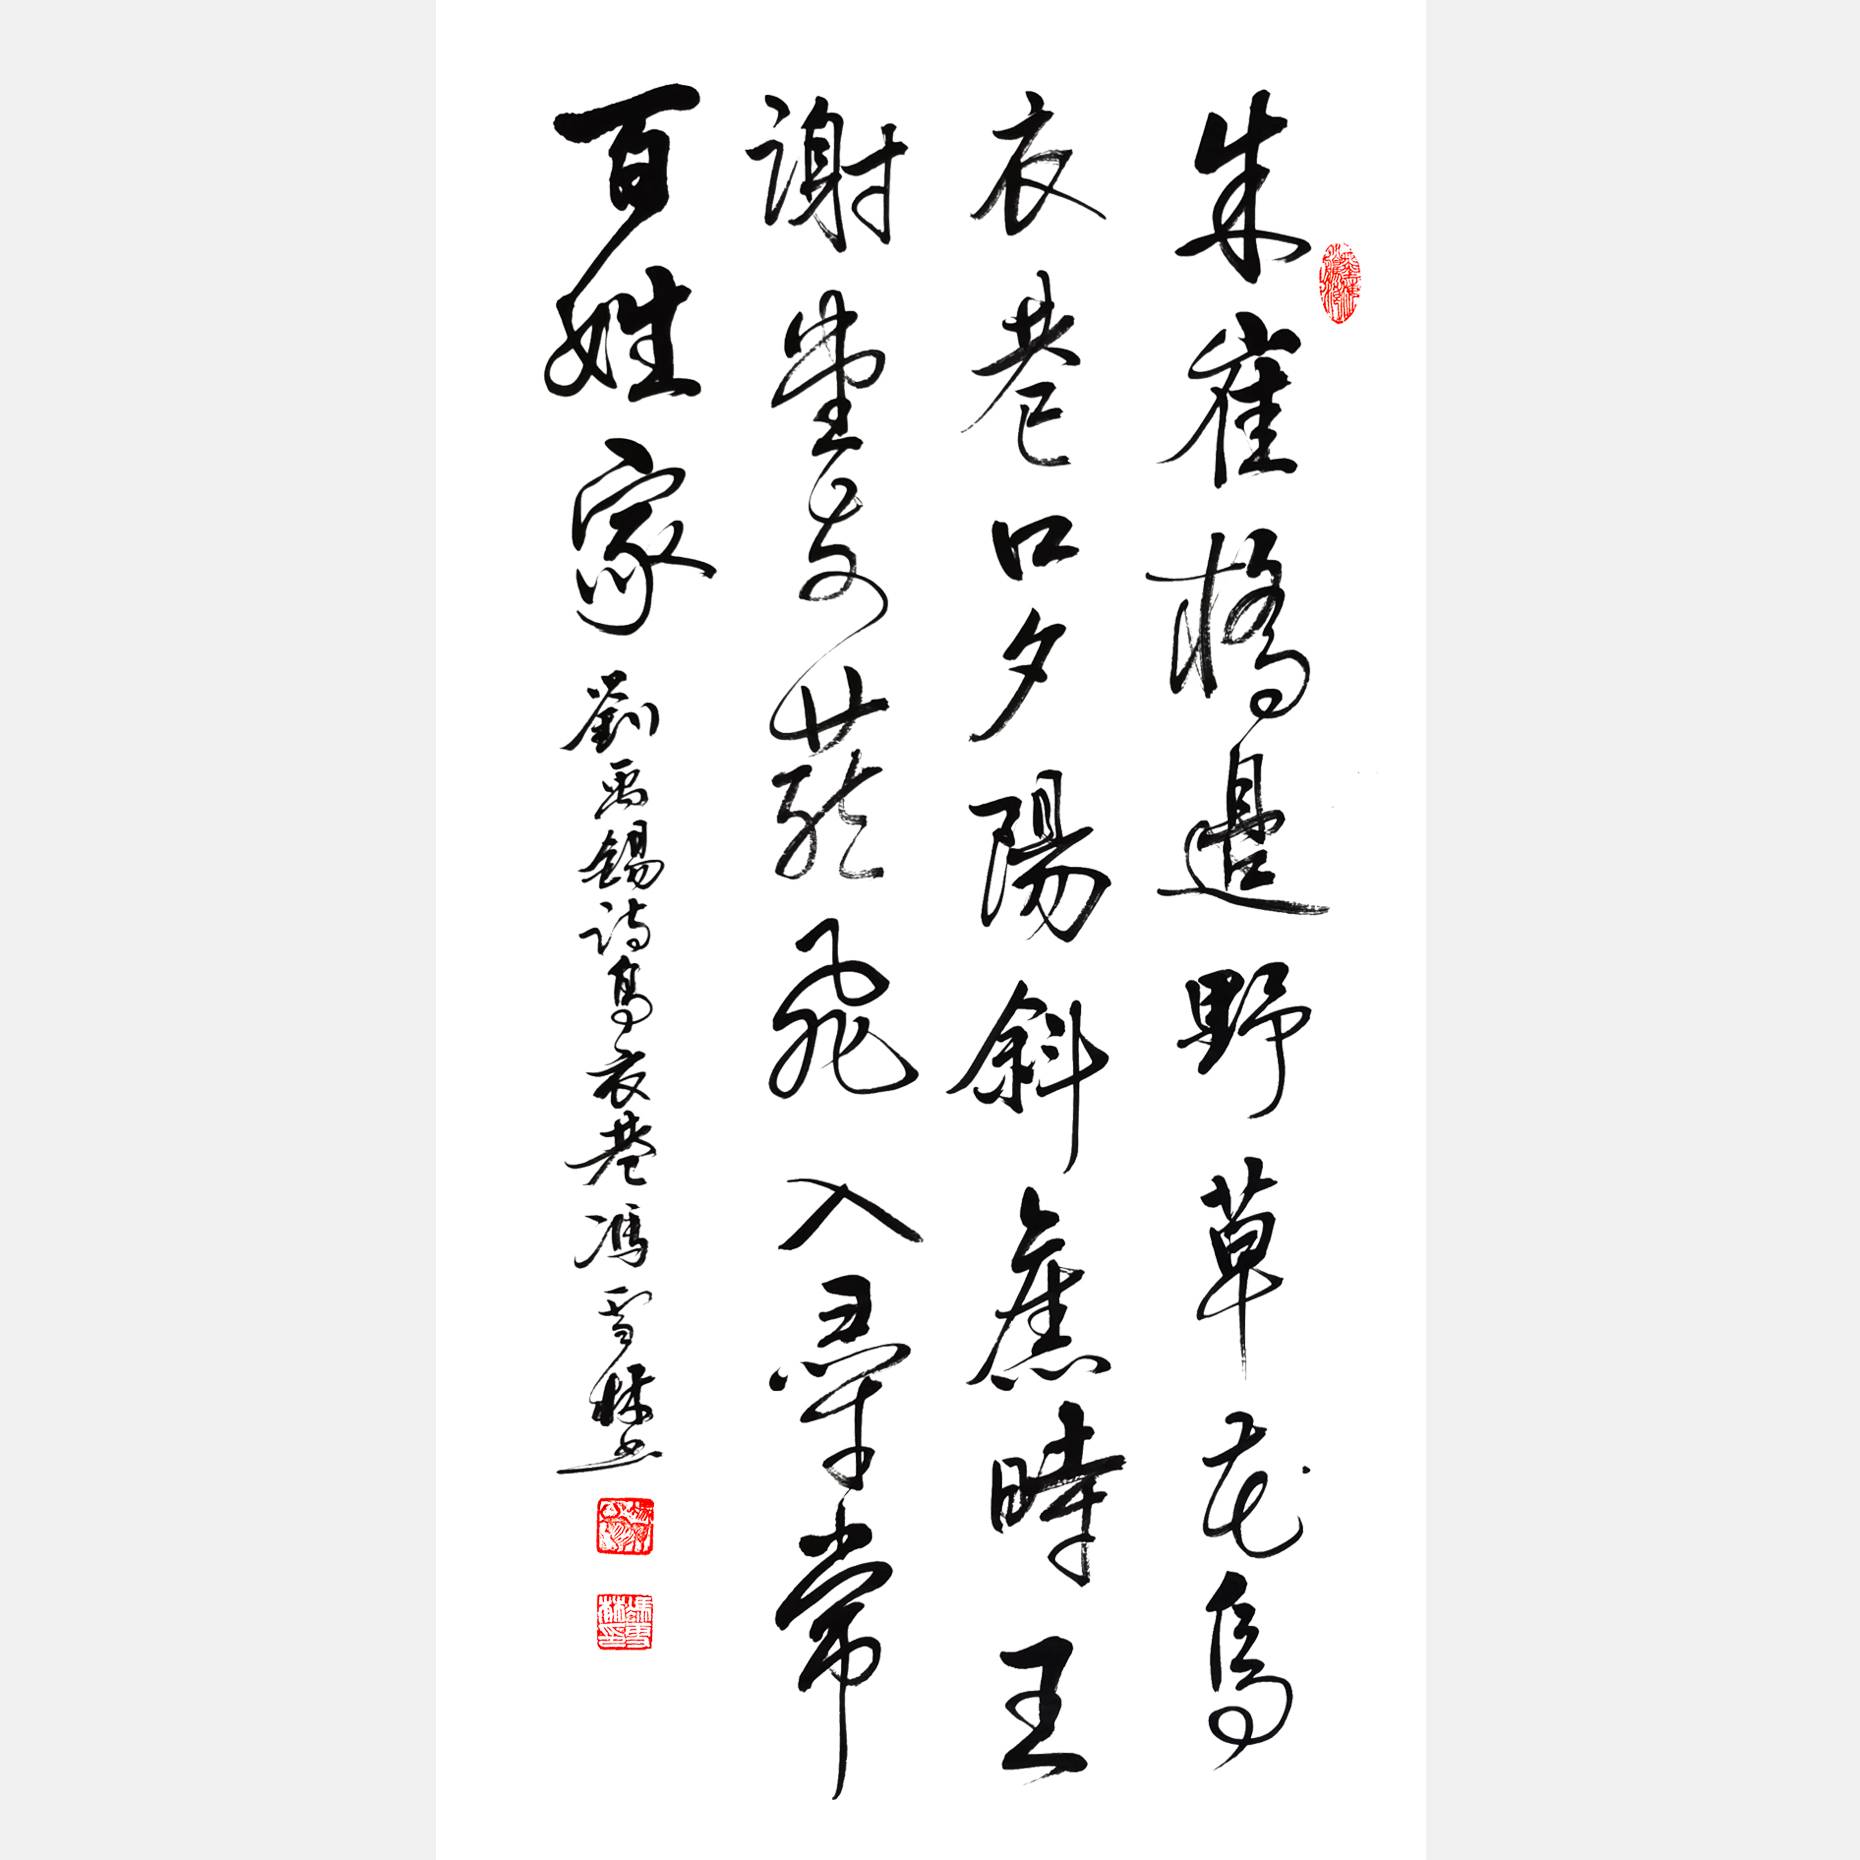 朱雀橋邊野草花烏
衣巷口夕陽斜舊時王
謝堂前燕飛入尋常
百姓家 劉禹錫詩烏衣巷 馮雪林書